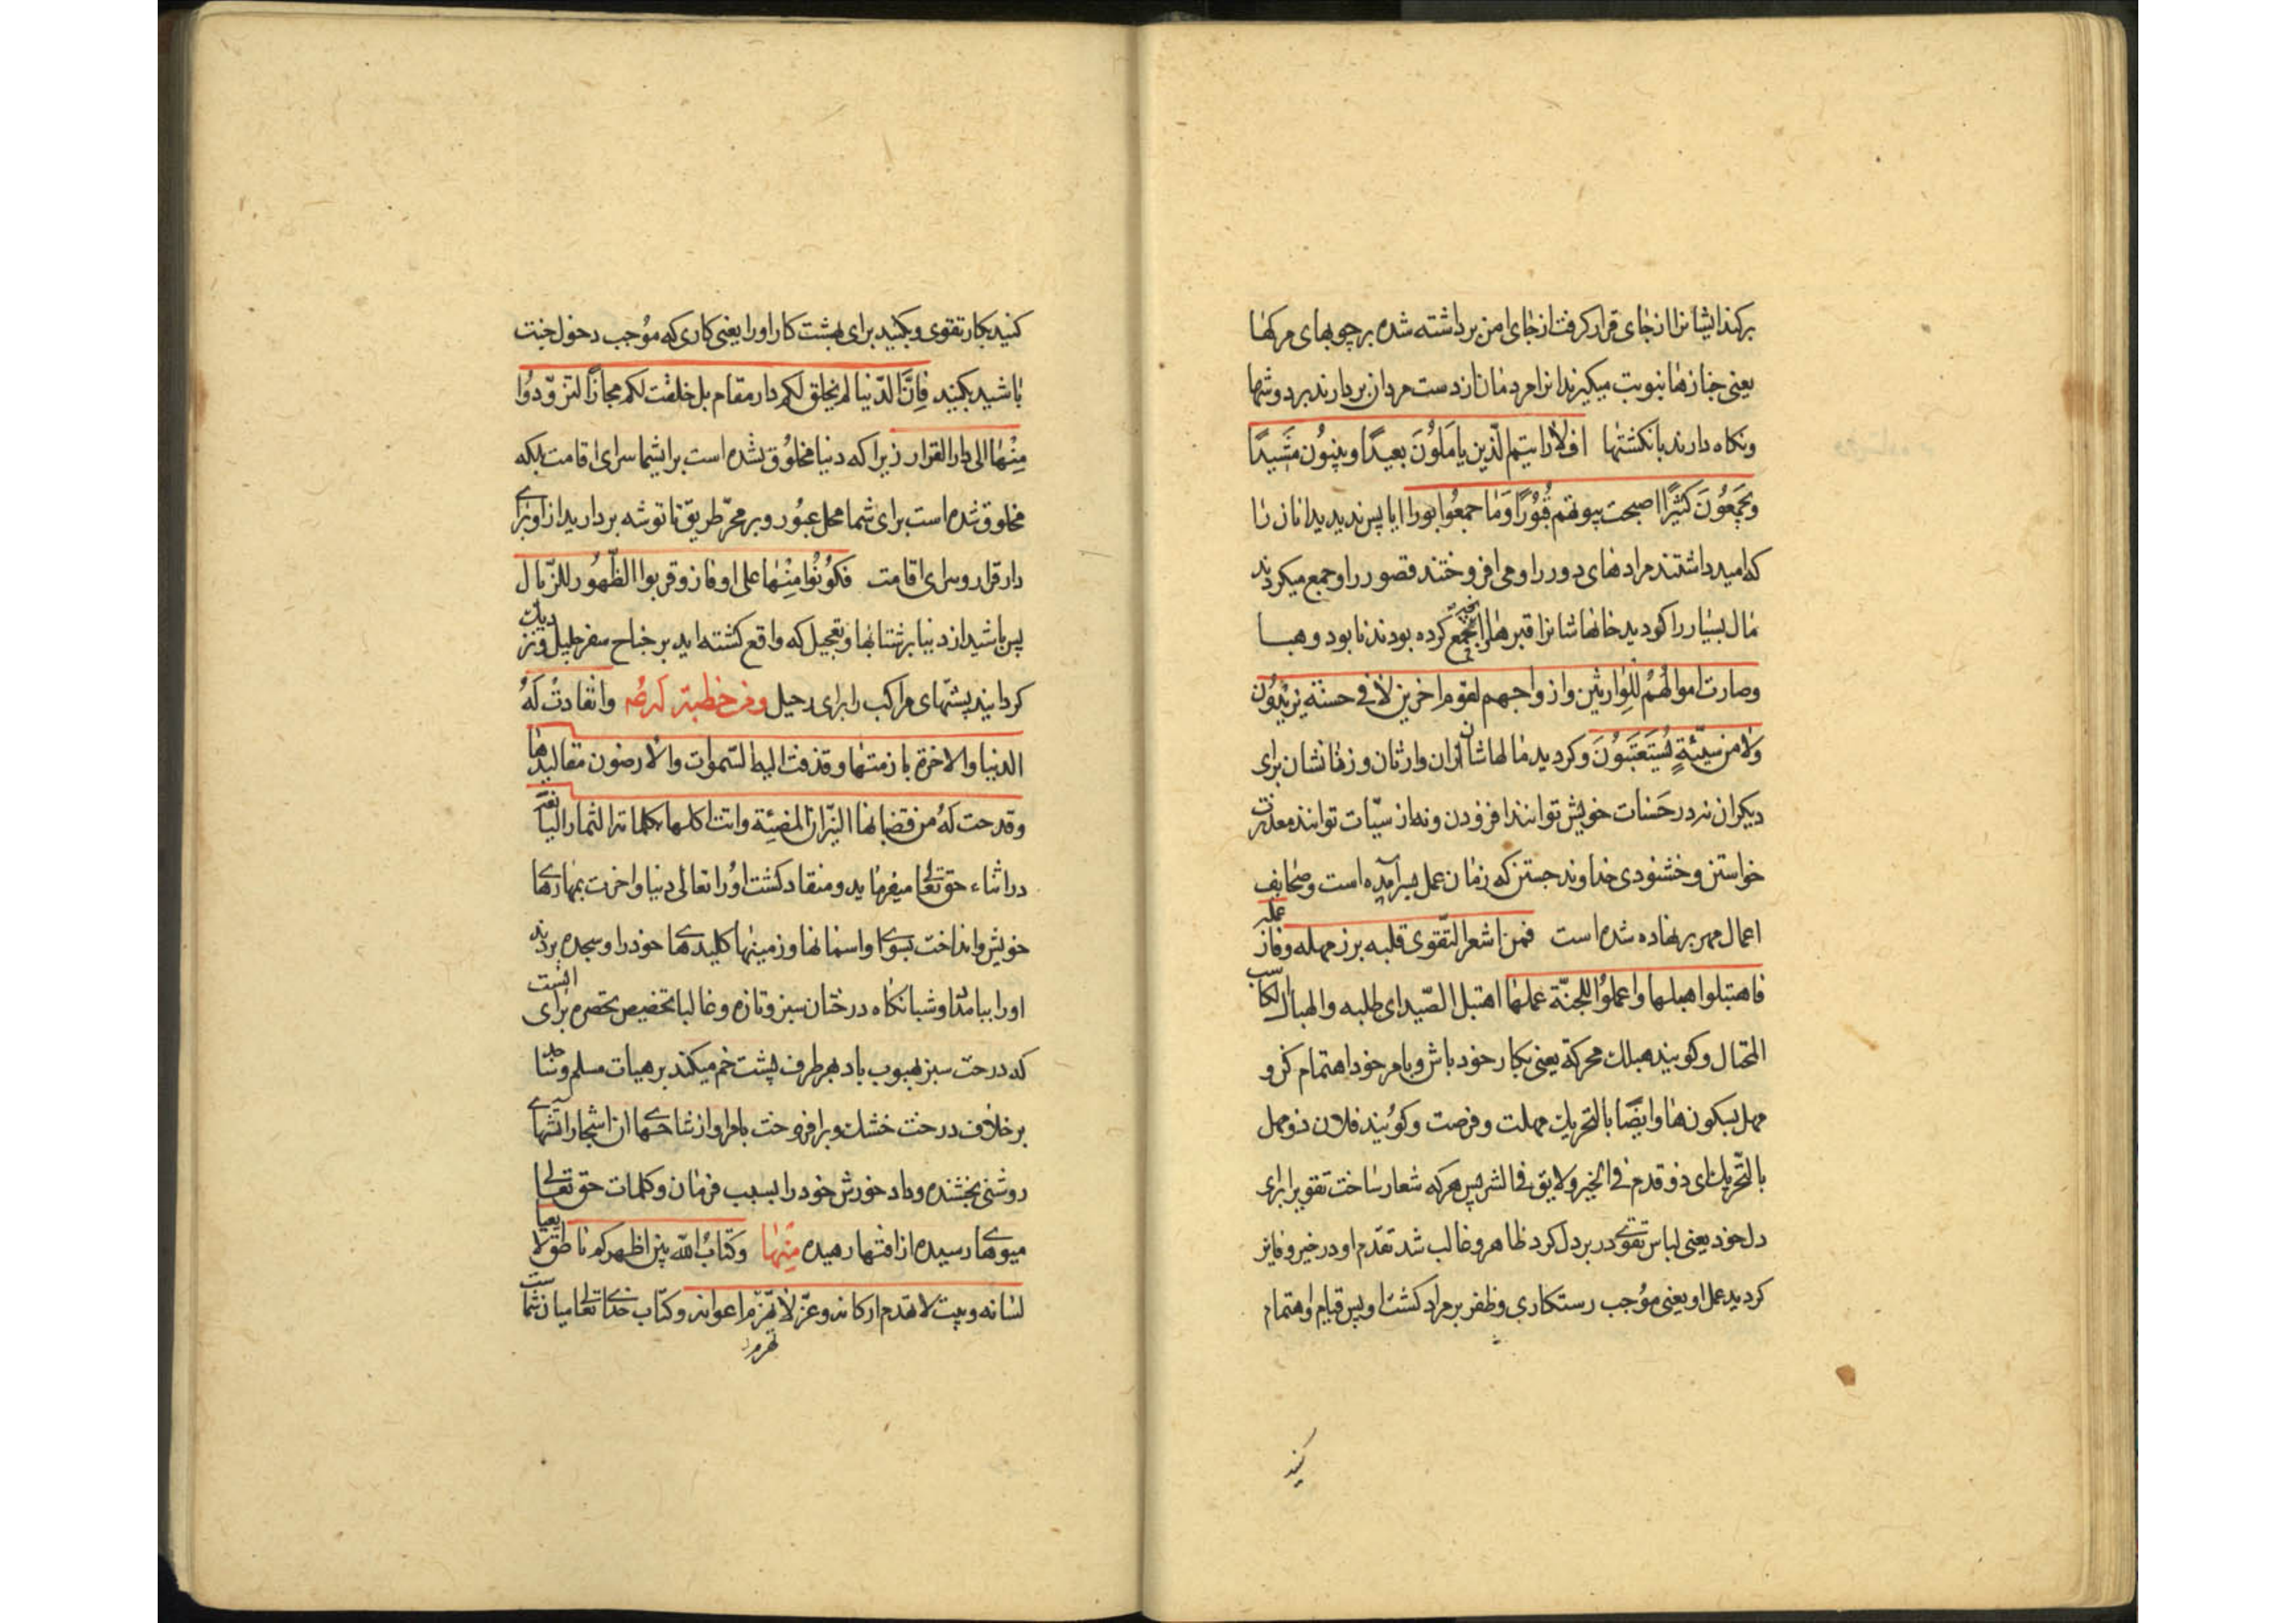 برکند ایشانرا از جای قرار کرفت از جای امن برداشته شده بر چوبهای مرکها
یعنی جنازها نبوبت میکیرند انرا مردمان از دست مردان بردارند بر دوشها
ونکاه دارند بانکشتها افلا رایتم الّذین یاملون بعیدًا ویبنون مشیدًا
ویجمعون کثیرًا اصبحت بیوتهم قبورًا وما جمعوا بورا ایا پس ندیدید انانرا
که امید داشتند مرادهای دور را ومی افروختند قصور را وجمع میکردند
مال بسیار را کردید خانهاشانرا قبرها وانچه جمع کرده بودند نابود وهبا
وصارت اموالهم للوارثین وازواجهم لقوم اخرین لا فی حسنة یزیدون
ولا من سیّئةٍ یستعتبون وکردید مالهاشان ازان وارثان وزنانشان برای
دیکران نه در حسنات خویش توانند افزودن ونه از سیّات توانند معذرت
خواستن وخشنودی خداوند جستن که زمان عمل بسرآمده است وصحایف
اعمال مهر بر نهاده شده است فمن اشعر التّقوی قلبه برز مهله وفاز عمله
فاهتبلوا هبلها واعملوا للجنّة عملها اهتبل الصّید ای طلبه والهبال الکاسب
المحتال وکویند هبلک محرکة یعنی بکار خود باش وبامر خود اهتمام کن و
مهل بسکون ها وایضًا بالتحریک مهلت وفرصت وکویند فلان ذو مهل
بالتّحریک ای ذو قدم فی الخیر ولا یق فی الشر پس هرکه شعار ساخت تقویرا برای
دل خود یعنی لباس تقوی در بر دل کرد ظاهر وغالب شد تقدّم او در خیر وفایز
کردید عمل او یعنی موجب رستکاری وظفر بر مراد کشت او پس قیام واهتمام
کنید
کنید بکار تقوی وبکنید برای بهشت کار او را یعنی کاری که موجب دخول جنت
باشید بکنید فانّ الدّنیا لم یخلق لکم دار مقام بل خلقت لکم مجازًا لتزوّدوا
منها الی دار القرار زیرا که دنیا مخلوق نشده است برای شما سرای اقامت بلکه
مخلوق شده است برای شما محل عبور وبر ممرّ طریق تا توشه بردارید از او برای
دار قرار وسرای اقامت فکونوا منها علی اوفاز وقربوا الظّهور للزّیال
پس باشید از دنیا بر شتابها وتعجیل که واقع کشته اید بر جناح سفر جلیل ونزدیک
کردانید پشتهای مراکب را برای رحیل ومن خطبة له وانقادت له
الدنیا والاخرة بازمتها وقذفت الیه السّموات والارضون مقالیدها
وقدحت له من قضبانها النّیران المضیئة واتت اکلها بکلماته الثمار الیانعة
در اثناء حق تعالی میفرماید ومنقاد کشت او را تعالی دنیا واخرت بمهارهای
خویش وانداخت بسوی او اسمانها وزمینها کلیدهای خود را وسجده بردند
او را ببامداد وشبانکاه درختان سبز وتازه وغالبا تخصیص بخضره برای انست
که درخت سبز بهبوب باد بهر طرف پشت خم میکند بر هیات مسلم وساجد
بر خلاف درخت خشک وبرافروخت بامر او از شاخهای ان اشجار آتشهای
روشنی بخشنده وداد خورش خود را بسبب فرمان وکلمات حق تعالی
میوهای رسیده از افتها رهیده منها وکتاب اللّه بین اظهرکم ناطق لا یعیا
لسانه وبیت لا تهدم ارکانه وعزّ لا تهزم اعوانه وکتاب خدای تعالی میان شماست